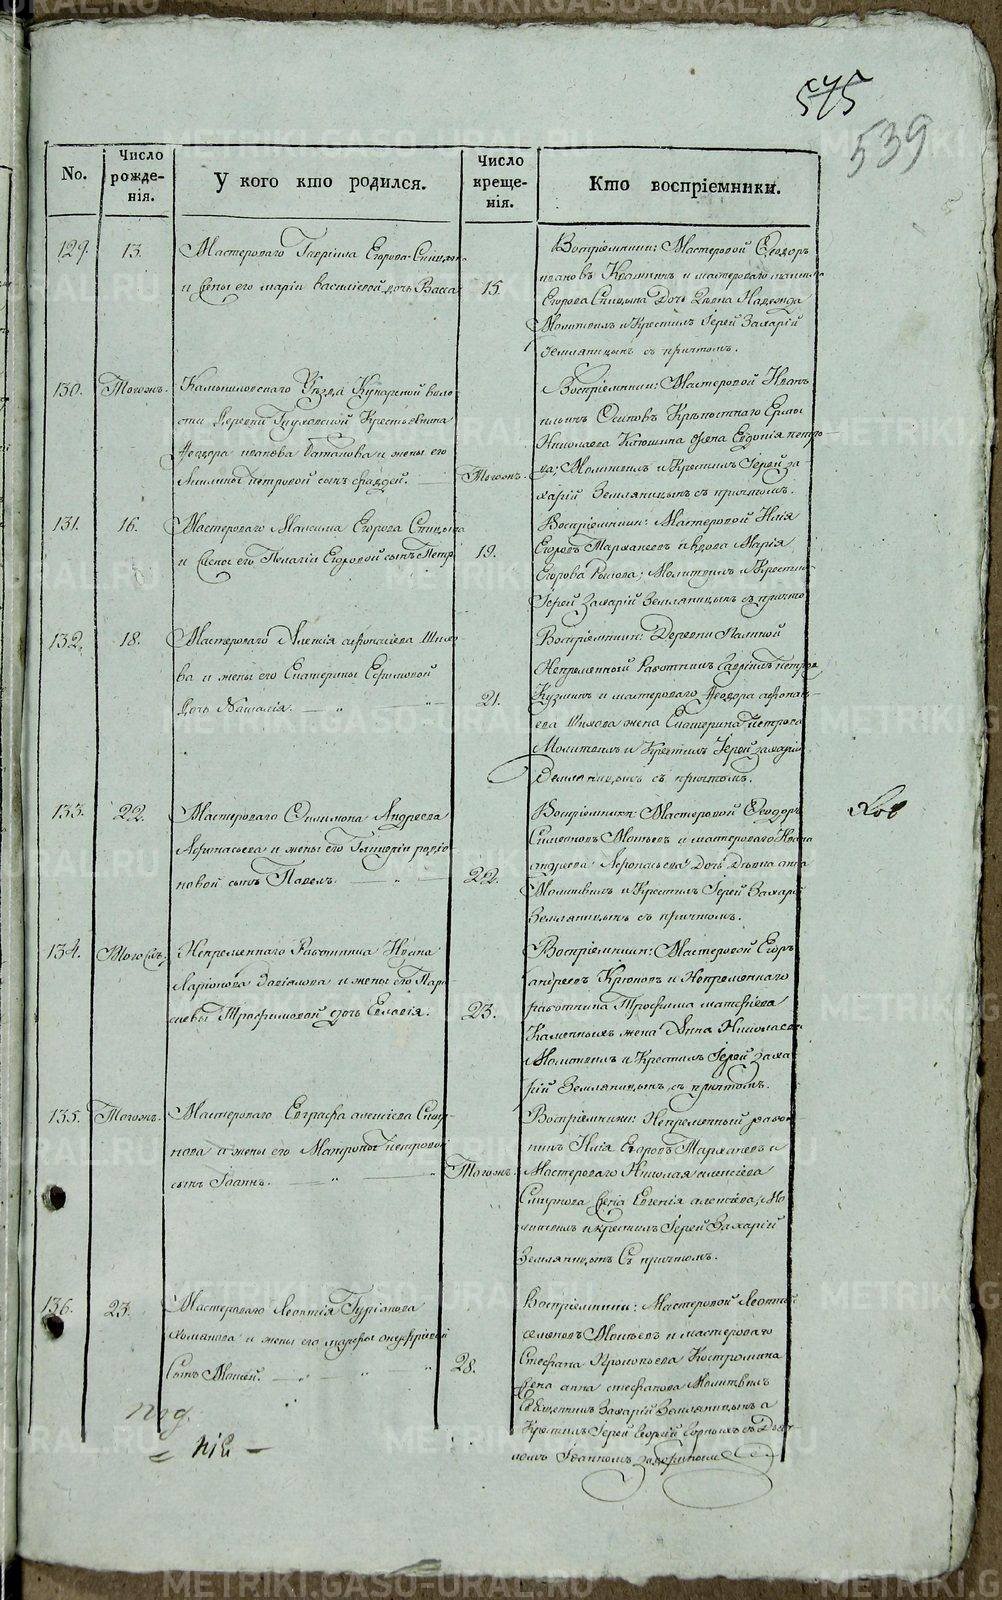 575
539
No.
Число рожде- нія.
У кого кто родился.
Число креще- нія.
Кто воспріемники.
129.
13.
Мастероваго Гаврила Егорова Спицына
и жены его Маріи Васильевой дочь Васса
15.
Воспріемники: Мастеровой Ѳеодоръ
Ивановъ и мастероваго
Егорова Спицына Дочь Надежда
Молитвилъ и Крестилъ Іерей Захарій
Земляницынъ съ причтомъ.
130.
Тогожъ.
Камышловскаго Уѣзда воло-
сти Деревни Глуховской Крестьянина
Ѳеодора Иванова и жены его
Акилины Петровой сынъ Фаддей.
Тогожъ.
Воспріемники: Мастеровой Иванъ
Осиповъ Крѣпостнаго Ермы
Николаева жена Евдокія Петро-
ва; Молитвилъ и Крестилъ Іерей За
харій Земляницынъ съ причтомъ.
131.
16.
Мастероваго Максима Егорова Спицына
и жены его Пелагіи Егоровой сынъ Петръ
19.
Воспріемники: Мастеровой Илія
Егоровъ Тарханеевъ и вдова Марія
Егорова; Молитвилъ и Крестилъ
Іерей Захарій Земляницынъ съ причто
132.
18.
Мастероваго Алексія Афонасіева Шихо-
ва и жены его Екатерины Ефимовой
Дочь Наталія.
21.
Воспріемники: Деревни
Непременный Работникъ Гаврилъ Петров
Кузминъ и мастероваго Ѳеодора Афонась-
ева Шихова жена Екатерина Петрова
Молитвилъ и Крестилъ Іерей Захарій
Земляницынъ съ причтомъ.
133.
22.
Мастероваго Филимона Андреева
Афонасьева и жены его Гликеріи Родіо-
новой сынъ Павелъ.
22.
Воспріемники: Мастеровой Ѳеодоръ
Симеоновъ Мокѣевъ и мастероваго Ивана
Андреева Афонасьева Дочь Дѣвка Анна
Молитвилъ и Крестилъ Іерей Захарій
Земляницынъ съ причтомъ.
134.
Того
Непременнаго Работника Ивана
Ларіонова и жены его Пара-
скевы Трофимовой дочь Евлалія.
23.
Воспріемники: Мастеровой Егоръ
Андреевъ Крюковъ и Непременнаго
работника Трофима Матвѣева
Каменныхъ жена Анна Николаева
Молитвилъ и Крестилъ Іерей Заха-
рій Земляницынъ съ причтомъ.
135.
Тогожъ.
Мастероваго Евграфа Алексіева Смир-
нова и жены его Матроны Петровой
сынъ Іоаннъ.
Тогожъ.
Воспріемники: Непременный работ-
никъ Илія Егоровъ Тарханеевъ и
Мастероваго Николая Алексіева
Смирнова жена Евгенія Алексіева; Мо-
литвилъ и крестилъ Іерей Захарій
Земляницынъ Съ причтомъ.
136.
23.
Мастероваго Леонтія Гуріанова
Хомякова и жены его Марфы Онуфріевой
Сынъ Мокей.
28.
Воспріемники: Мастеровой Леонтій
Семеновъ Мокѣевъ и мастероваго
Стефана Прокопьева Костромина
жена Анна Стефанова Молитвилъ
Священникъ Захарій Земляницынъ а
Крестилъ Іерей Георгій съ Дьяч-
комъ Іоанномъ